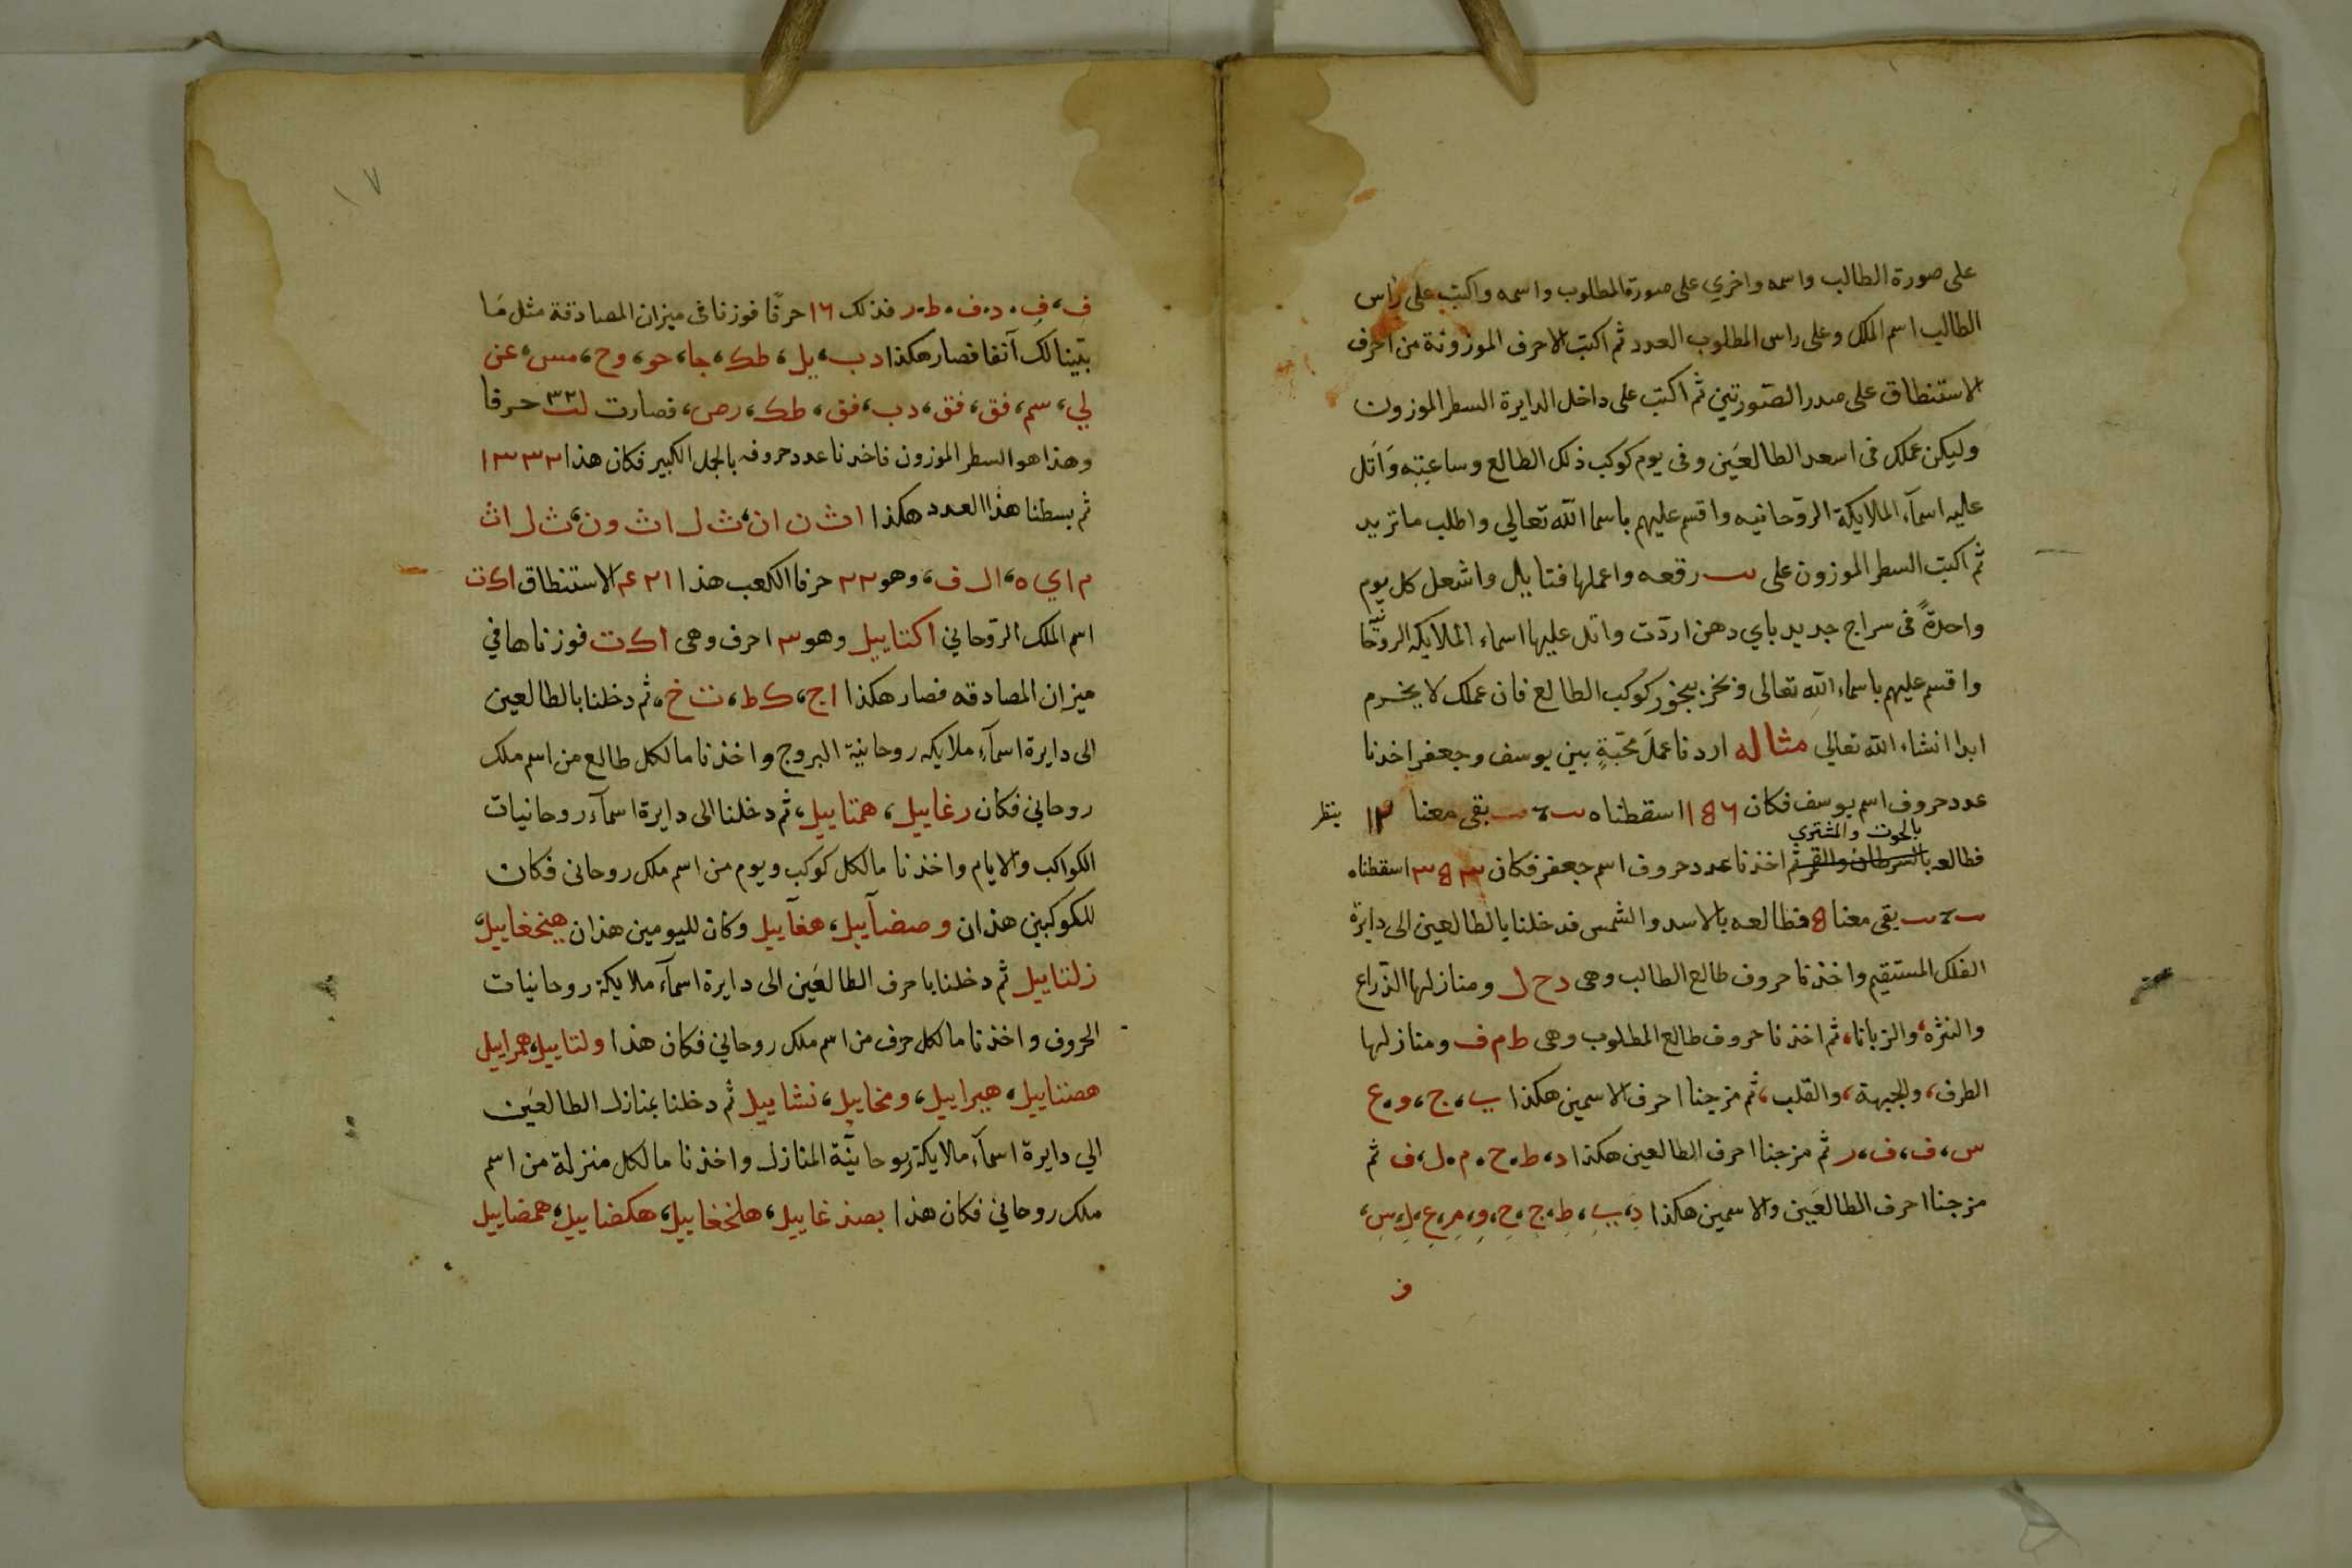 على صورة الطالب واسمه واخري على صورة المطلوب واسمه واكتب على راس
الطالب اسم الملك وعلى راس المطلوب العدد ثم اكتب الاحرف الموزونة من احرف
الاستنطاق على صدر الصّورتين ثم اكتب على داخل الدايرة السطر الموزون
وليكن عملك فى اسعد الطالعَين وفى يوم كوكب ذلك الطالع وساعتِه وَاتل
عليه اسمآء الملايكة الروّحانيه واقسم عليهم باسما الله تعالي واطلب ما تريد
ثم اكتب السطر الموزون على رقعه واعملها فتايل واشعل كل يوم
واحدةً فى سراج جديد باي دهن اردّت واتل عليها اسماء الملايكه الروحا نيّه
واقسم عليهم باسماء اللهِ تعالى وبخر ببخور كوكب الطالع فان عملك لا يخرم
ابدا انشاء الله تعالي مثاله اردنا عملَ محّبةٍ بين يوسف وجعفر اخذنا
عدد حروف اسم يوسف فكان ١٥٦ اسقطناه بقى معنا ١٢ ينظر
بالحوت والمشتري
فطالعه بالسرطان والقمر ثم اخذنا عدد حروف اسم جعفر فكان ٣٥٣ اسقطناه
بقى معنا ٥ فطالعه بالاسد والشمس فدخلنا بالطالعين الى دايرة
الفلك المستقيم واخذنا حروف طالع الطالب وهى د ح ل ومنازلها الذّراع
والنثره، والزبانا، ثم اخذنا حروف طالع المطلوب وهى ط م ف ومنازلها
الطرف، والجبهة، والقلب، ثم مزجنا احرف الاسمين هكذا ي، ج، و، ع
س، ف، ف، ر ثم مزجنا احرف الطالعين هكذا د، ط، ح، م، ل، ف ثم
مزجنا احرف الطالعَين والاسمين هكذا د، ي، ط، ج، ح، و، م، ع، ل، س،
ف
١٧
ف، ف، د، ف، ط، ر فذلك ١٦ حرفًا فوزنا فى ميزان المصادقة مثل مَا
بيّنا لك آنفا فصار هكذا د ب، يل، طك، جا، حو، وح، مس، عن
لي، سم، فق، فق، دب، فق، طك، رص، فصارت لب ٣٢ حرفا
وهذا هو السطر الموزون فاخذنا عدد حروفه بالجمل الكبير فكان هذا ١٣٣٢
ثم بسطنا هذا العدد هكذا ا ث ن ا ن، ث ل ا ث و ن، ث ل ا ث
م ا ي ه، ا ل ف، وهو ٢٢ حرفا الكعب هذا ٤٢١ الاستنطاق ا ك ت
اسم الملك الرّوحاني اكتاييل وهو ٣ احرف وهى ا ك ت فوزناها في
ميزان المصادقه فصار هكذا ا ج، ك ط، ت خ، ثم دخلنا بالطالعين
الى دايرة اسمآء ملايكه روحانية البروج واخذنا ما لكل طالع من اسم ملك
روحاني فكان رغاييل، همتاييل، ثم دخلنا الى دايرة اسمآء روحانيات
الكواكب والايام واخذنا ما لكل كوكب ويوم من اسم ملك روحانى فكان
للكوكبين هذان وصضآييل، هغآييل وكان لليومين هذان هينخغاييل،
زلتاييل ثم دخلنا باحرف الطالعَين الى دايرة اسمآء ملايكة روحانيات
الحروف واخذنا ما لكل حرف من اسم ملك روحاني فكان هذا ولتاييل، همراييل
هصنتاييل، هيراييل، ومخاييل، نشاييل ثم دخلنا بمنازل الطالعَين
الي دايرة اسمآء ملايكة روحانيّة المنازل واخذنا ما لكل منزلة من اسم
ملك روحاني فكان هذا بصذغاييل، هلخغاييل، هكضاييل، همضاييل